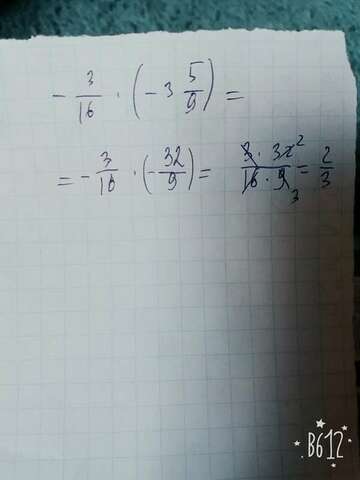 - 3/16 · (-3 5/9) =
= - 3/16 · (-32/9) = 3 · 32 2 / 16 · 9 3 = 2/3
B612